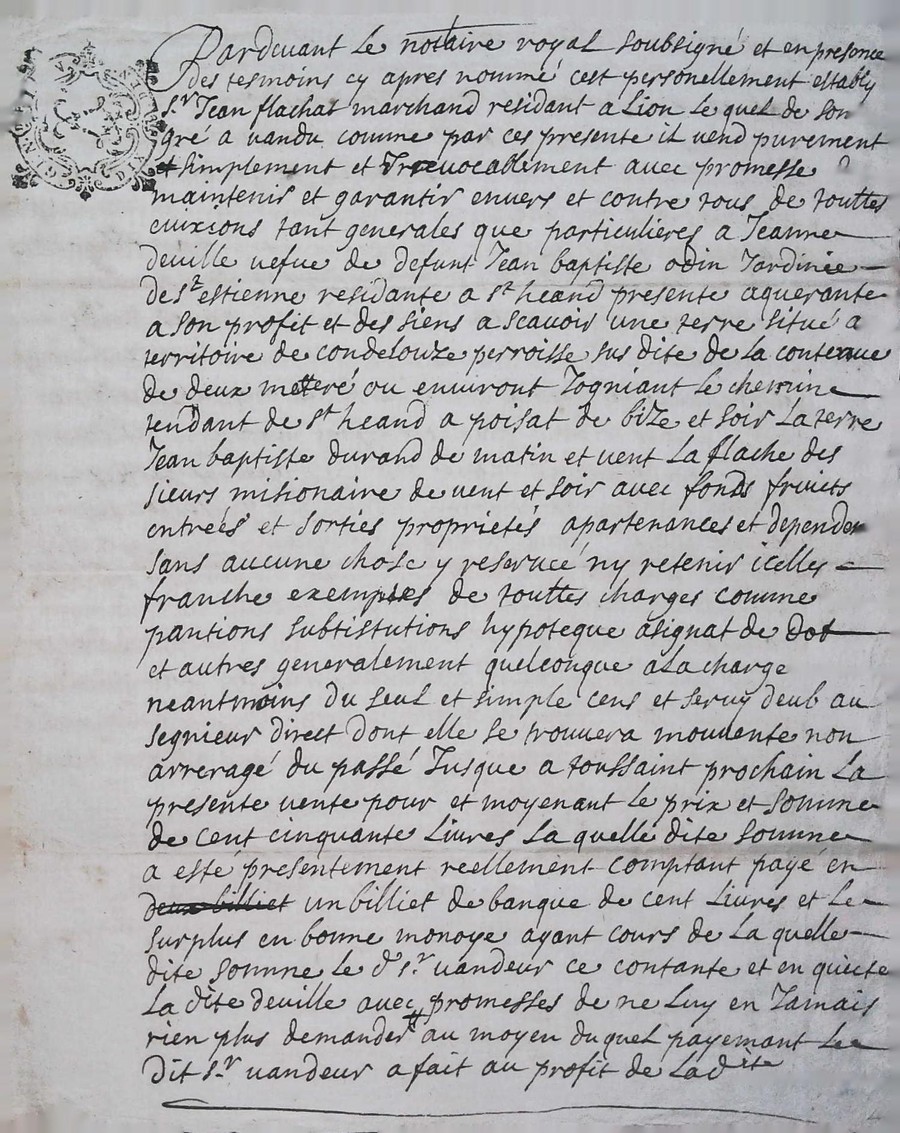 Pardevant Le notaire royal soubsigné et en presence
des tesmoins cy apres nommé cest personellement estably
Sr Jean flachat marchand residant a Lion Le quel de son
gré a vandu comme par ces presente il vend purement
et simplement et Irrevocablement avec promesse
maintenir et garantir envers et contre tous de touttes
evixions tant generales que particulieres a Jeanne
deville vefve de defunt Jean baptiste odin Jardinie
de St estienne residante a St heand presente aquerante
a son profit et des siens a scavoir une terre situé a
territoire de condelouze perroisse sus dite de la contenue
de deux metteré ou environt Jogniant Le chemin
tendant de St heand a poisat de bize et soir La terre
Jean baptiste durand de matin et vent La flache des
sieurs misionaire de vent et soir avec fonds fruicts
entreés et sorties proprietés apartenances et dependen
sans aucune chose y reservée ny retenir icelles
franche exemptes de touttes charges comme
pantions subtistutions hypoteque asignat de dot
et autres generalement quelconque a La charge
neantmoins du seul et simple cens et servy deub au
segnieur direct dont elle se trouvera mouvente non
arreragé du passé Jusque a toussaint prochain La
presente vente pour et moyenant Le prix et somme
de cent cinquante Livres La quelle dite somme
a esté presentement reellement comptant payé en
deux billiet un billiet de banque de cent Livres et Le
surplus en bonne monoye ayant cours de La quelle
dite somme Le dt sr vandeur ce contante et en quicte
La dite deville avec promesses de ne Luy en Jamais
rien plus demander au moyen du quel payemant Le
dit sr vandeur a fait au profit de La dite